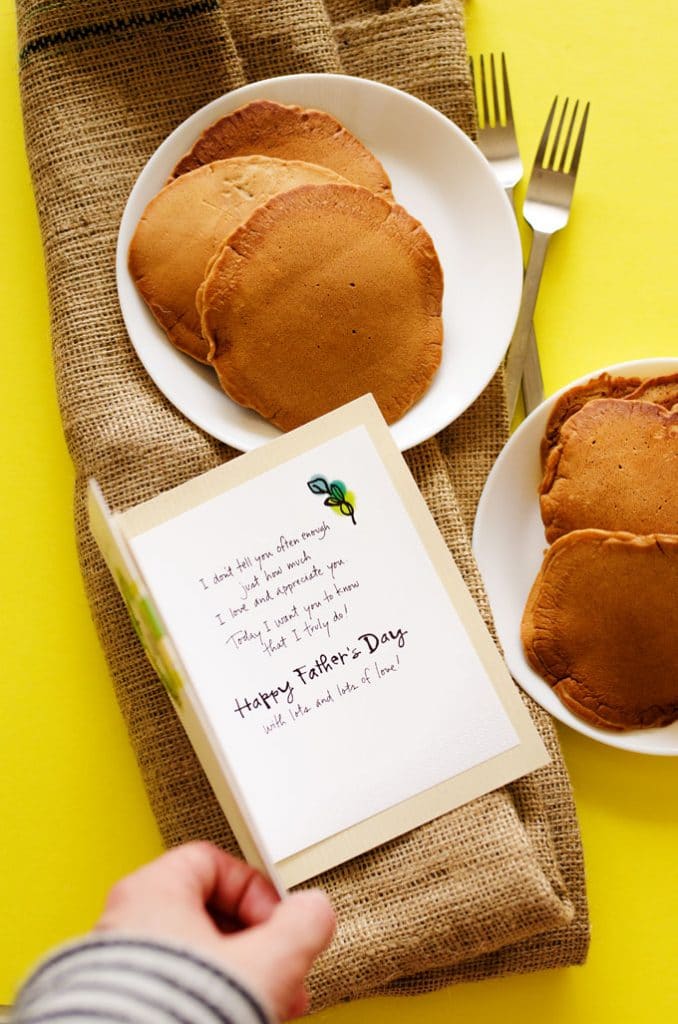 I don't tell you often enough
just how much
I love and appreciate you
Today I want you to know
that I truly do!
Happy Father's Day
with lots and lots of love!